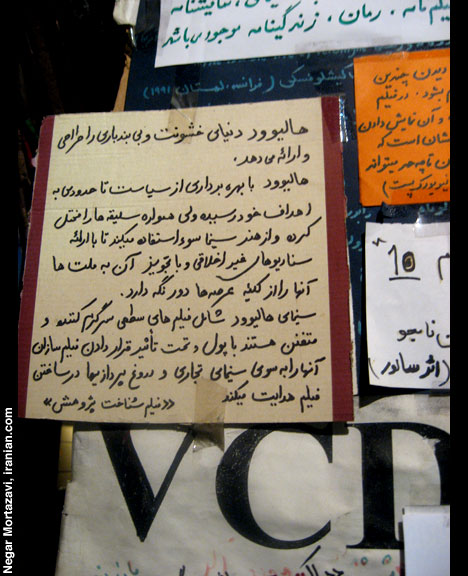 فیلم نامه . رمان ، زندگینامه موجود می باشد
کیشلوفسکی (فرانسه، لهستان ۱۹۹۱)
دیدن چنین
بشود. در فیلم
و آن نمایش دادن
است که
هالیوود دنیای خشونت و بی بندباری را طراحی
و ارائه می دهد.
هالیوود با بهره برداری از سیاست تا حدودی به
اهداف خود رسیده ولی همواره سلیقه ها را مختل
کرده و از هنر سینما سوء استفاده میکند تا با ارائه
سناریوهای غیر اخلاقی و با تجویز آن به ملت ها
آنها را از کلیه عرصه ها دور نگه دارد.
سینمای هالیوود شامل فیلم های سطحی سرگرم کننده و
متفنن هستند با پول و تحت تأثیر قرار دادن فیلم سازان
آنها را به سوی سینمای تجاری و دروغ پردازیها در ساختن
فیلم هدایت میکند «فیلم شناخت پژوهش»
10
(اثر سانور)
VCD
Negar Mortazavi, iranian.com